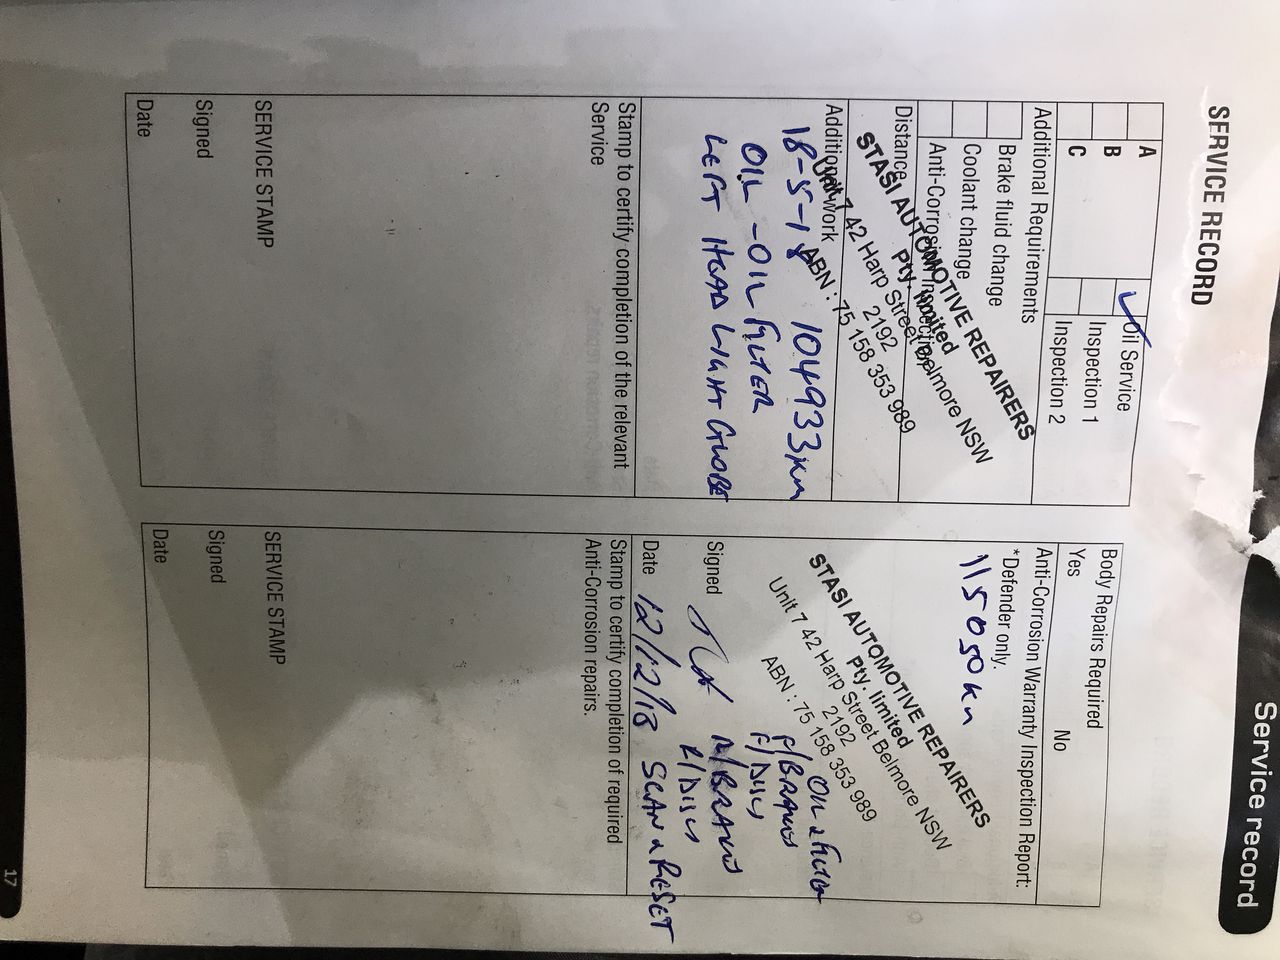 Service record
SERVICE RECORD
A
B
C
Oil Service
Inspection 1
Inspection 2
Additional Requirements
Brake fluid change
Coolant change
Anti-Corrosion Inspection
Distance
STASI AUTOMOTIVE REPAIRERS
Pty. limited
Unit 7 42 Harp Street Belmore NSW
2192
ABN : 75 158 353 989
Additional Work
18-5-18 104933km
OIL - OIL FILTER
LEFT HEAD LIGHT GLOBE
Stamp to certify completion of the relevant
Service
SERVICE STAMP
Signed
Date
Body Repairs Required
Yes No
Anti-Corrosion Warranty Inspection Report:
*Defender only.
115050km
STASI AUTOMOTIVE REPAIRERS
Pty. limited
Unit 7 42 Harp Street Belmore NSW
2192
ABN : 75 158 353 989
OIL & FILTER
F/BRAKES
F/DISCS
Signed R/BRAKES
R/DISCS
Date 12/12/18 SCAN & RESET
Stamp to certify completion of required
Anti-Corrosion repairs.
SERVICE STAMP
Signed
Date
17